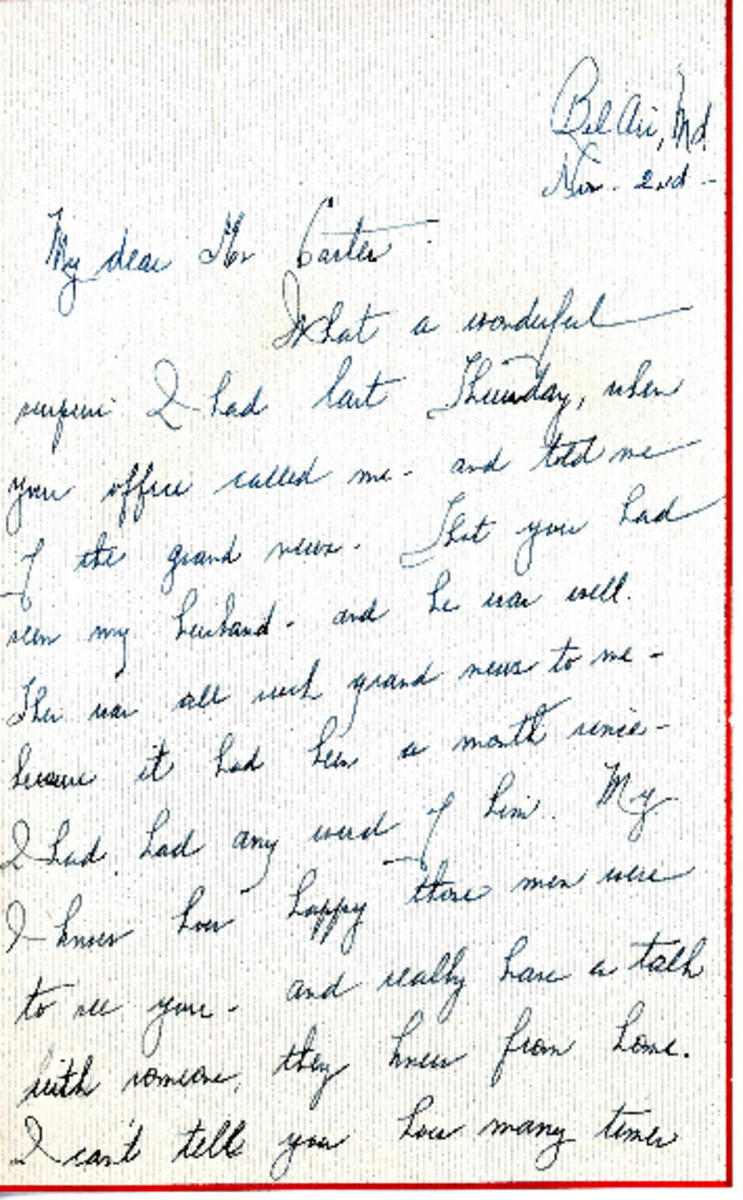 Bel Air, Md.
Nov. 2nd -
My dear Mr Carter -
What a wonderful
surprise I had last Thursday, when
your office called me - and told me
of the grand news. That you had
seen my husband - and he was well.
This was all such grand news to me -
because it had been a month since -
I had had any word of him. My
I know how happy those men were
to see you - and really have a talk
with someone, they knew from home.
I can't tell you how many times